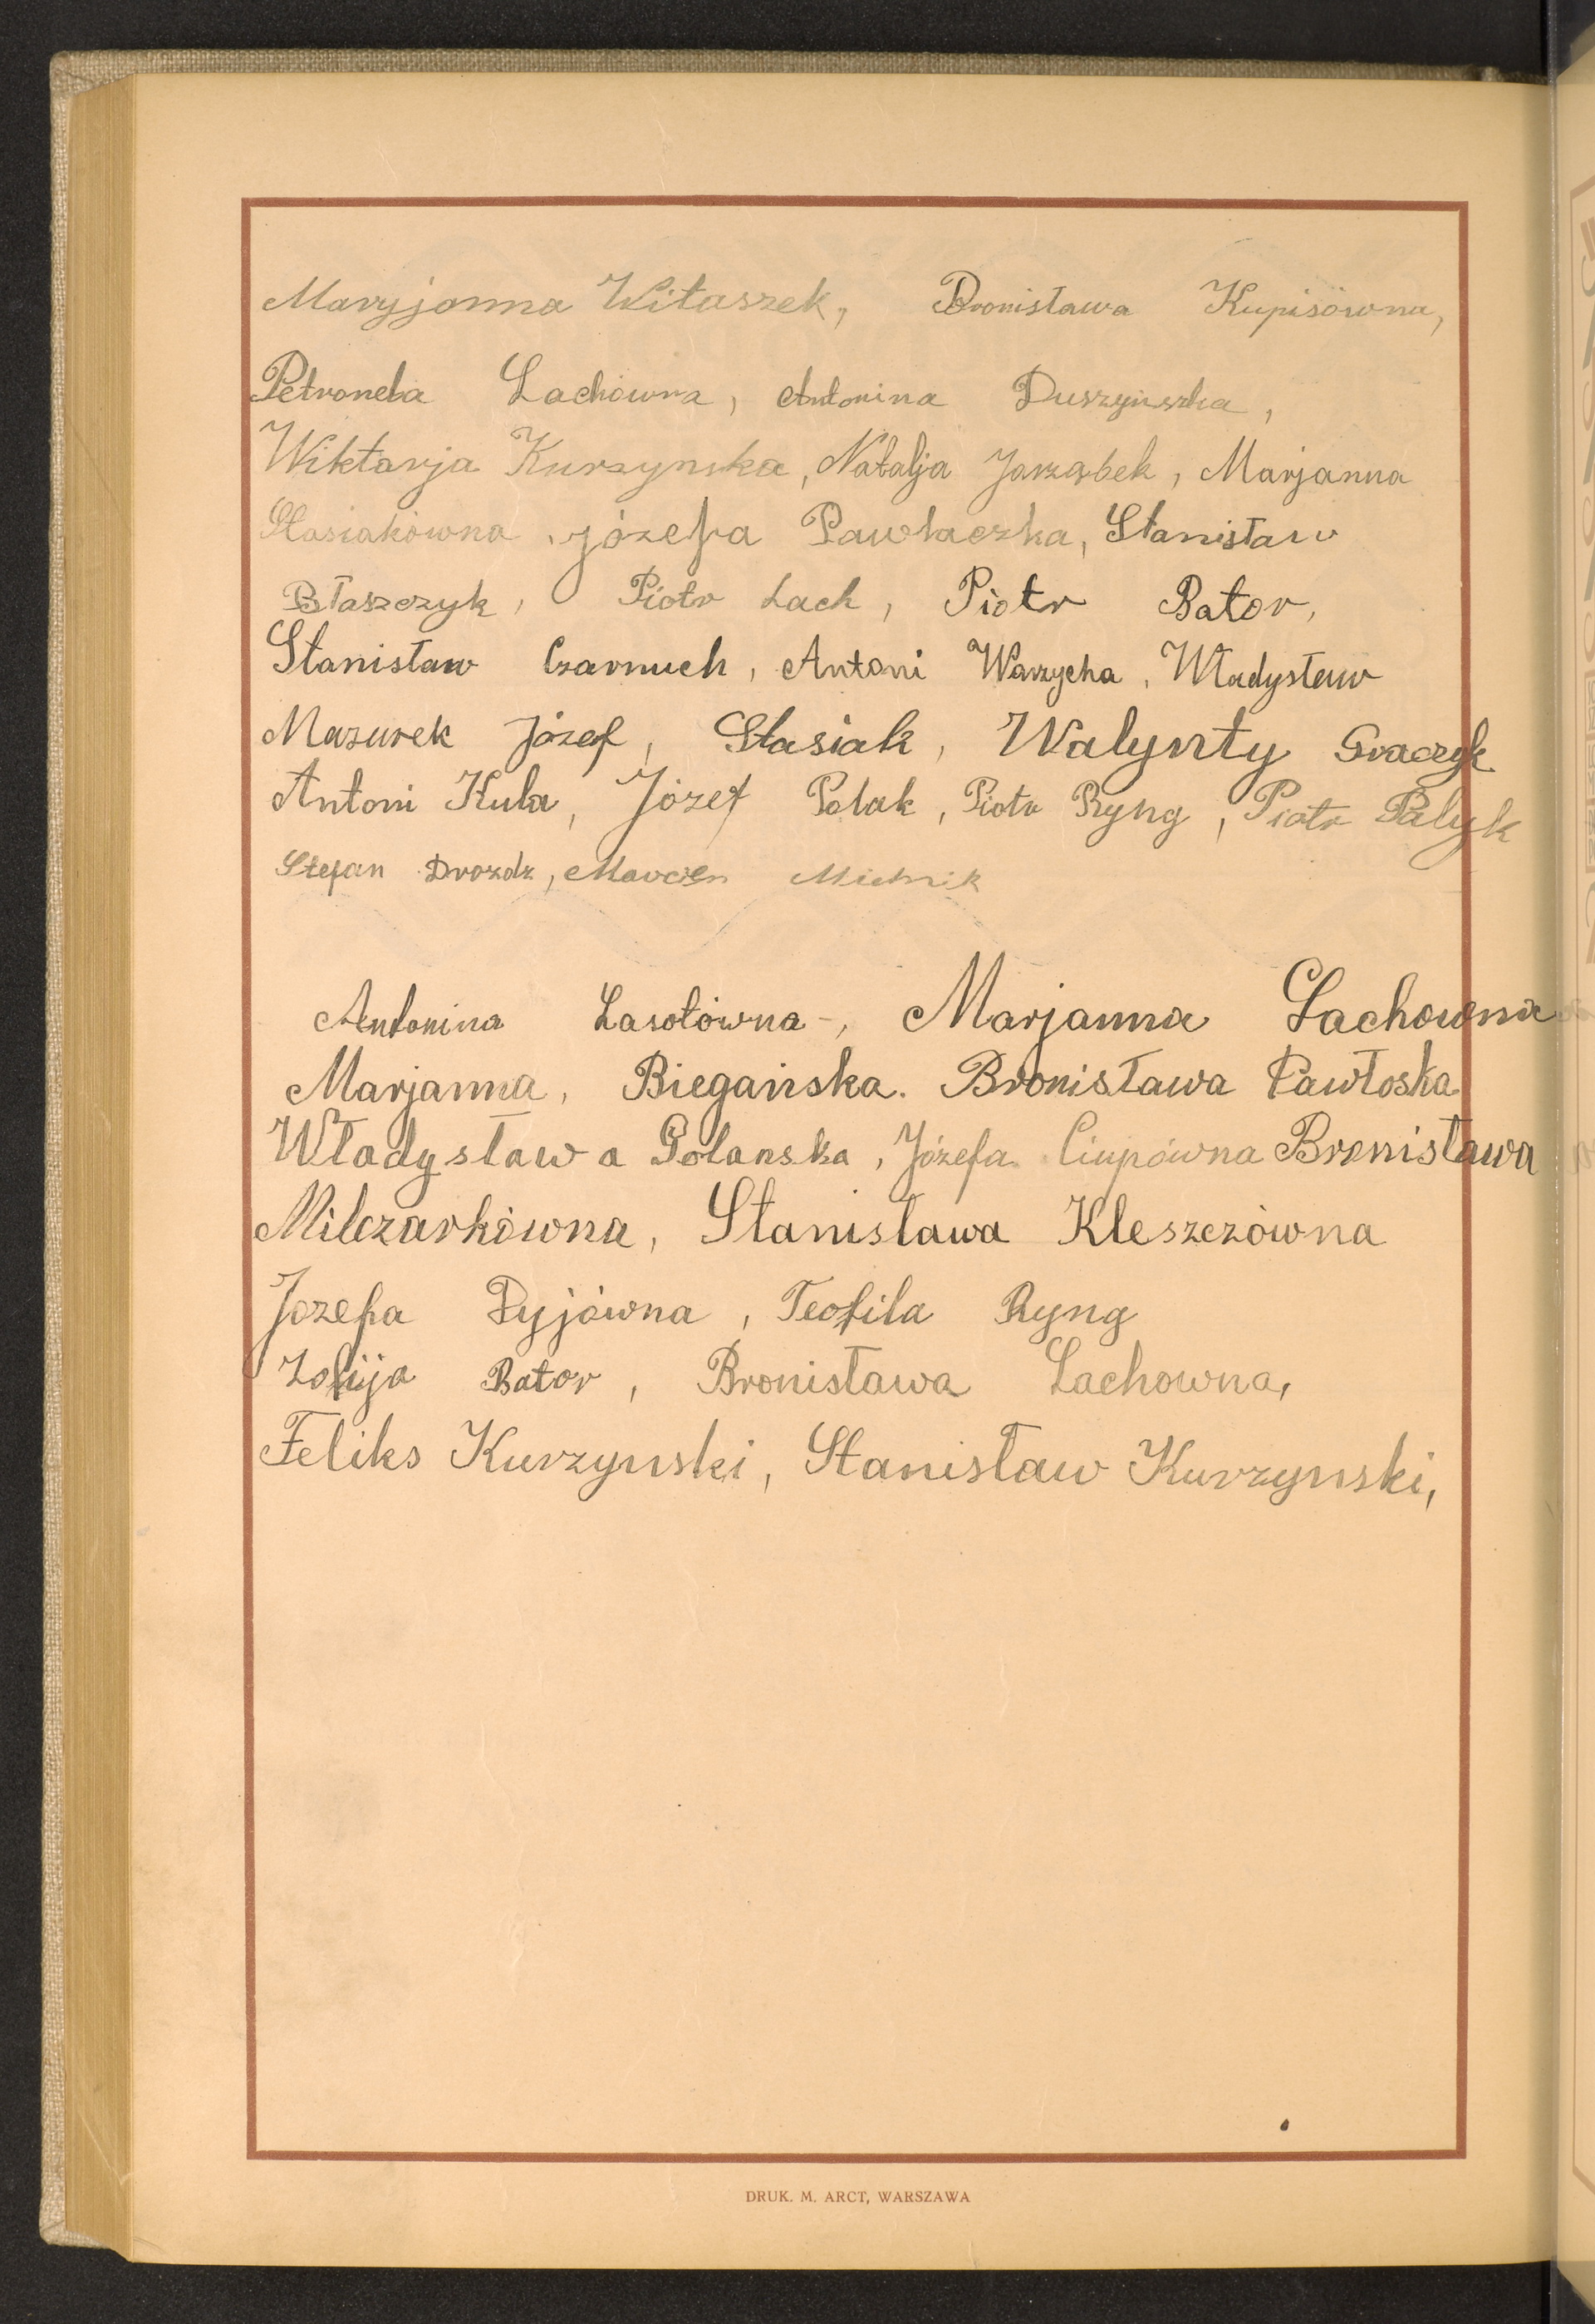 Maryjanna Witaszek, Bronisława Kupisówna,
Petronela Lachówna, Antonina Duszyńszka,
Wiktarja Kurzynska, Natalja Jarząbek, Marjanna
Stasiakówna, józefa Pawlaczka, Stanisław
Błaszczyk, Piotr Lach, Piotr Bator,
Stanisław Czarnuch, Antoni Warzycha, Władysław
Mazurek Józef, Stasiak, Walynty Graczyk
Antoni Kula, Józef Polak, Piotr Ryng, Piotr Palyk
Stefan Drozdz, Marcien Michnik
Antonina Lasotówna-, Marjanna Lachowna
Marjanna, Biegańska. Bronisława Pawłoska
Władysława Polanska, Józefa Ciupówna Bronisława
Milczarkówna, Stanisława Kleszczówna
Józefa Pyjówna, Teofila Ryng
Zofija Bator, Bronisława Lachowna,
Feliks Kurzynski, Stanisław Kurzynski,
DRUK. M. ARCT, WARSZAWA